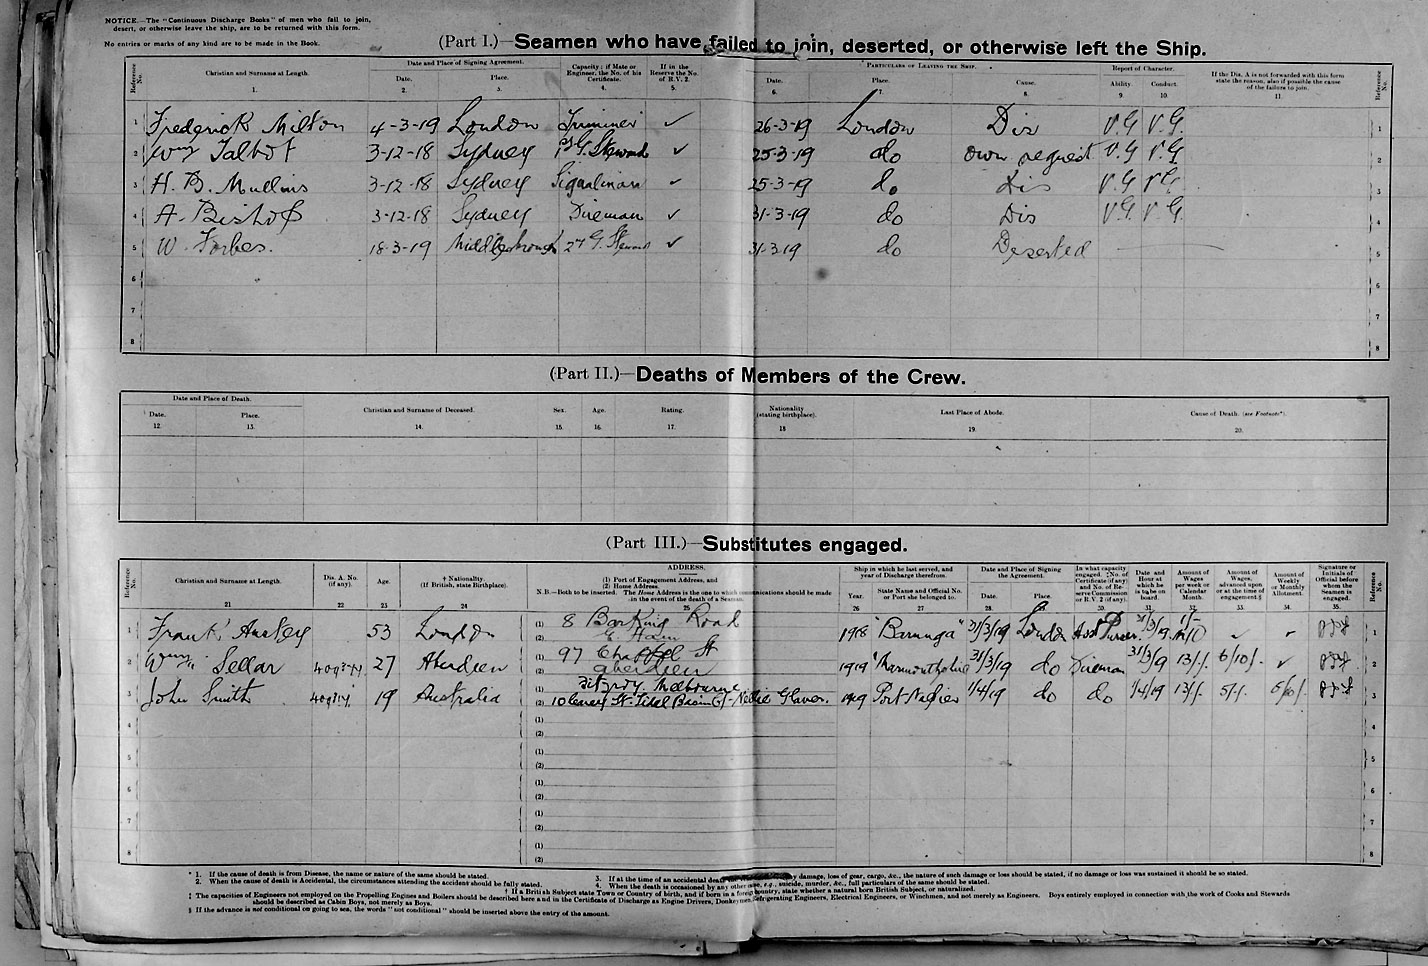 NOTICE.—The "Continuous Discharge Books" of men who fail to join,
desert, or otherwise leave the ship, are to be returned with this form.
No entries or marks of any kind are to be made in the Book.
(Part I.)—Seamen who have failed to join, deserted, or otherwise left the Ship.
Reference No. Christian and Surname at Length. Date and Place of Signing Agreement. Date. Place. Capacity; if Mate or Engineer, the No. of his Certificate. If in the Reserve the No. of R.V. 2. Particulars of Leaving the Ship. Date. Place. Cause. Report of Character. Ability. Conduct. If the Dis. A is not forwarded with this form state the reason, also if possible the cause of the failure to join. Reference No.
1. 2. 3. 4. 5. 6. 7. 8. 9. 10. 11.
1 Frederick Milson 4-3-19 London Trimmer ✓ 26-3-19 London Dis V.G V.G. 1
2 Wm Talbot 3-12-18 Sydney Steward ✓ 25-3-19 do own request V.G V.G. 2
3 H. B. Mullins 3-12-18 Sydney Signalman ✓ 25-3-19 do Dis V.G V.G. 3
4 A. Bishop 3-12-18 Sydney Fireman ✓ 31-3-19 do Dis V.G. V.G. 4
5 W. Forbes. 18-3-19 Middlesbrough 2nd G. Steward ✓ 31-3-19 do Deserted 5
6 6
7 7
8 8
(Part II.)—Deaths of Members of the Crew.
Date and Place of Death. Date. Place. Christian and Surname of Deceased. Sex. Age. Rating. Nationality (stating birthplace). Last Place of Abode. Cause of Death. (see Footnote*).
12. 13. 14. 15. 16. 17. 18 19. 20.
(Part III.)—Substitutes engaged.
Reference No. Christian and Surname at Length. Dis. A. No. (if any). Age. † Nationality. (If British, state Birthplace). ADDRESS. (1) Port of Engagement Address, and (2) Home Address. N.B.—Both to be inserted. The Home Address is the one to which communications should be made in the event of the death of a Seaman. Ship in which he last served, and year of Discharge therefrom. Year. State Name and Official No. or Port she belonged to. Date and Place of Signing the Agreement. Date. Place. In what capacity engaged. ‡No. of Certificate (if any) and No. of Reserve Commission or R.V. 2 (if any). Date and Hour at which he is to be on board. Amount of Wages per week or Calendar Month. Amount of Wages, advanced upon or at the time of engagement.§ Amount of Weekly or Monthly Allotment. Signature or Initials of Official before whom the Seaman is engaged. Reference No.
21 22 23 24 25 26 27 28. 29. 30. 31. 32. 33. 34. 35.
1 Frank Anstey 53 London (1) 8 Barking Road 1918 "Barunga" 31/3/19 London Asst Purser 1
(2) E. Ham
2 Wm Sellar 27 Aberdeen (1) 97 Chappel St 1919 31/3/19 do Fireman 13/-/- 6/10/- ✓ 2
(2) Aberdeen
3 John Smith 19 Australia (1) Fitzroy Melbourne 1919 Port Napier 1/4/19 do do 1/4/19 13/-/- 5/-/- 3
(2) 10 St. Tidal Basin
4 (1) (2) 4
5 (1) (2) 5
6 (1) (2) 6
7 (1) (2) 7
8 (1) (2) 8
* 1. If the cause of death is from Disease, the name or nature of the same should be stated.
2. When the cause of death is Accidental, the circumstances attending the accident should be fully stated.
3. If at the time of an accidental death any damage, loss of gear, cargo, &c., the nature of such damage or loss should be stated, if no damage or loss was sustained it should be so stated.
4. When the death is occasioned by any other cause, e.g., suicide, murder, &c., full particulars of the same should be stated.
† If a British Subject state Town or Country of birth, and if born in a foreign country, state whether a natural born British Subject, or naturalized.
‡ The capacities of Engineers not employed on the Propelling Engines and Boilers should be described here and in the Certificate of Discharge as Engine Drivers, Donkeymen, Refrigerating Engineers, Electrical Engineers, or Winchmen, and not merely as Engineers. Boys entirely employed in connection with the work of Cooks and Stewards
should be described as Cabin Boys, not merely as Boys.
§ If the advance is not conditional on going to sea, the words "not conditional" should be inserted above the entry of the amount.